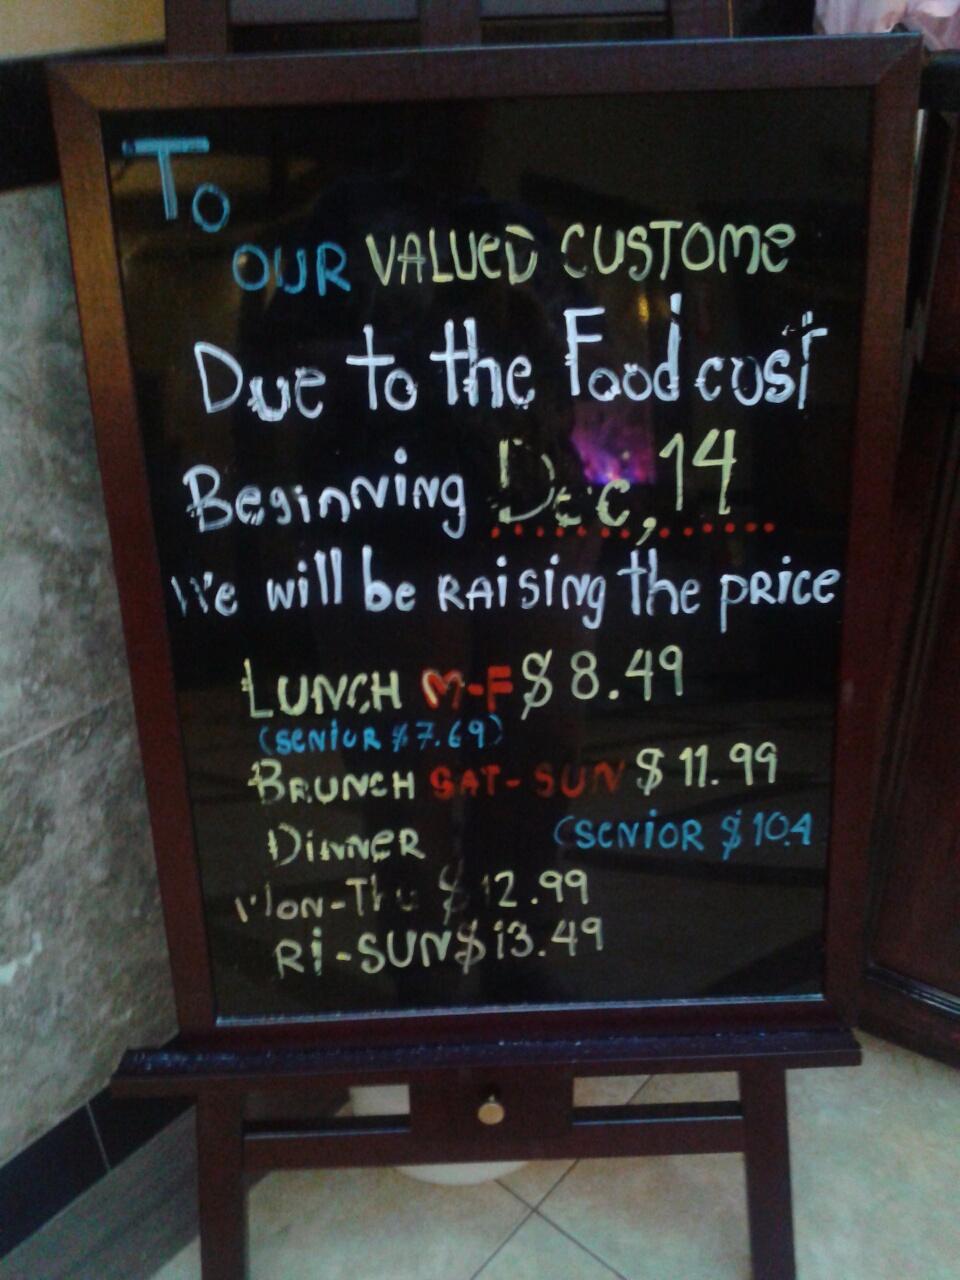 To
OUR VALUED CUSTOME
Due to the Food cost
Beginning Dec, 14
We will be RAising the PRICE
LUNCH M-F $8.49
(SENIOR $7.69)
BRUNCH SAT-SUN $11.99
DINNER (SENIOR $10.4
Mon-Thu $12.99
Ri-SUN $13.49